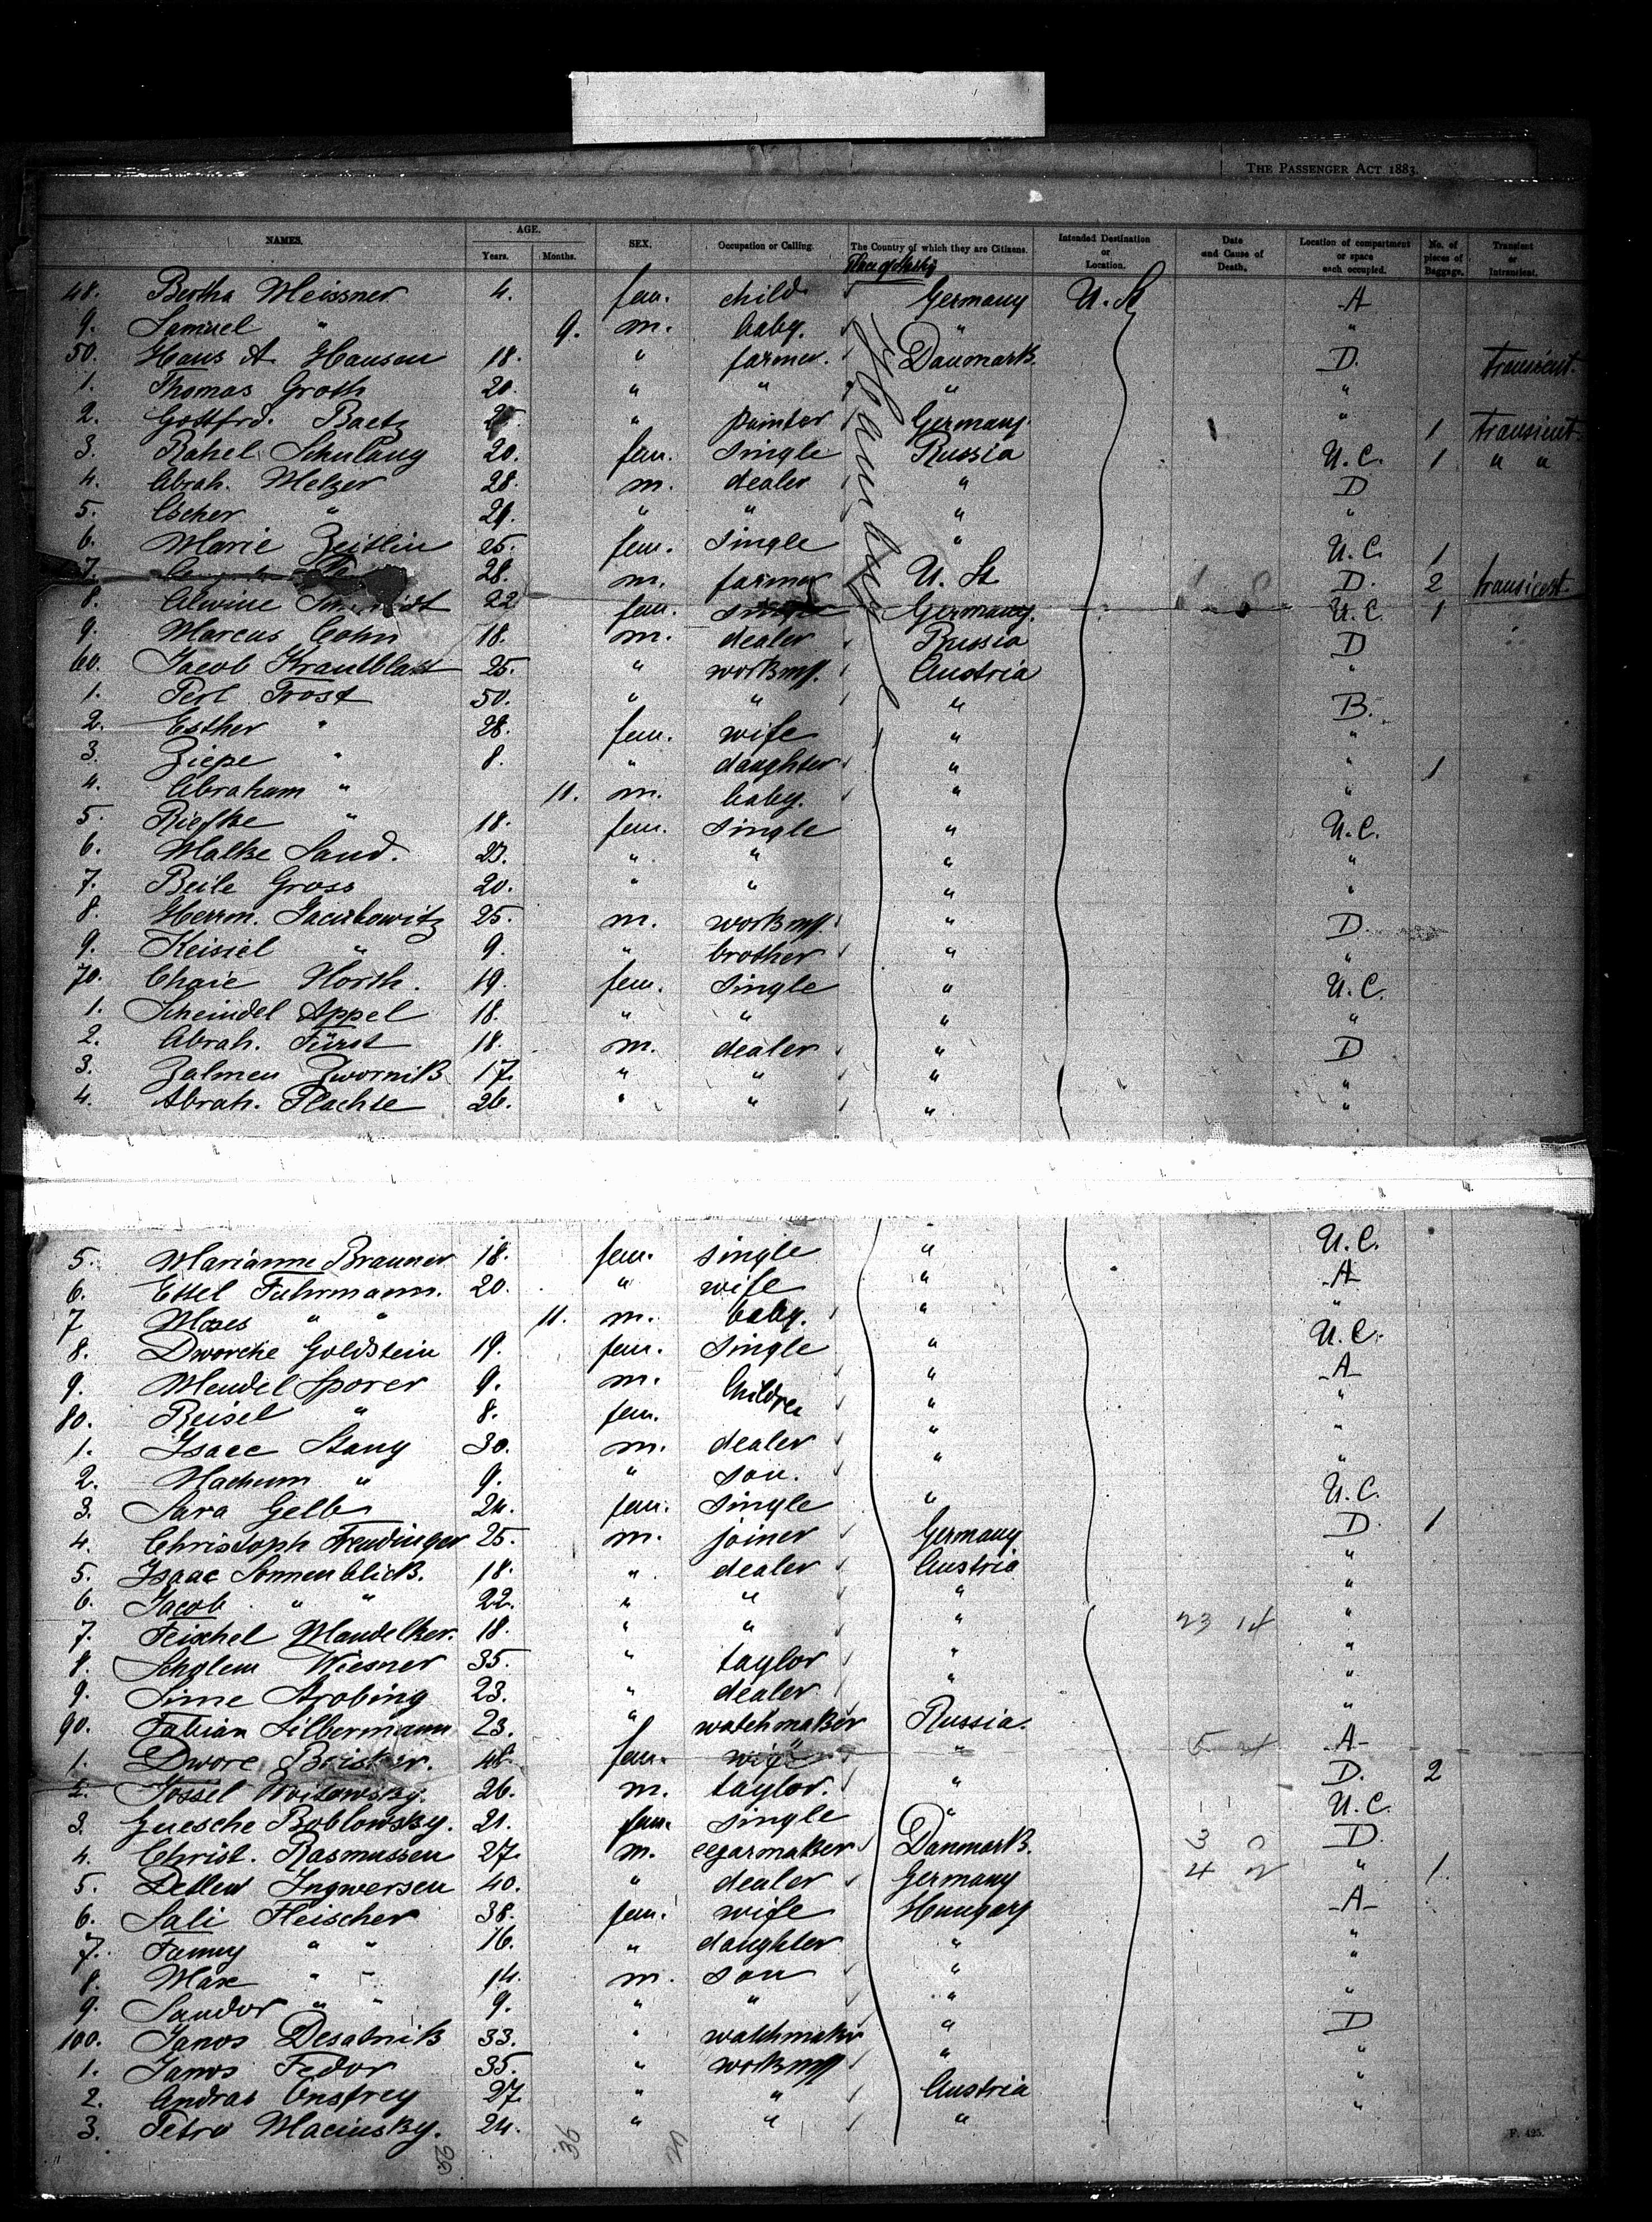 THE PASSENGER ACT 1883.
NAMES. AGE. Years. Months. SEX. Occupation or Calling. The Country of which they are Citizens. Intended Destination or Location. Date and Cause of Death. Location of compartment or space each occupied. No. of pieces of Baggage. Transient or Intransient.
Place of
48. Bertha Meissner 4. fem. child Germany U. St A
9. Samuel " 9. m. baby. " "
50. Hans A Hansen 18. " farmer. Danmark D. Transient.
1. Thomas Groth 20. " " " "
2. Gottfrd. Baetz " painter Germany " 1 Transient
3. Rahel Schulang 20. fem. single Russia U.C. 1 " "
4. Abrah. Melzer 28. m. dealer " D
5. Escher " 21. " " " "
6. Marie Zeitlin 25. fem. single " U.C. 1
7. 28. m. farmer U. St D. 2 transient.
8. Alwine Schmidt 22 fem. single Germany. U.C. 1
9. Marcus Cohn 18. m. dealer Russia D
60. Jacob Krautblatt 25. " workmn. Austria "
1. Perl Trost 50. " " " B.
2. Esther " 28. fem. wife " "
3. Ziepe " 8. " daughter " " 1
4. Abraham " 11. m. baby. " "
5. Riefke " 18. fem. single " U.C.
6. Malke Sand. 23. " " " "
7. Beile Gross 20. " " " "
8. Herrm. Jacubowitz 25. m. workmn. " D
9. Keisiel " 9. " brother " "
70. Chaie Horth. 19. fem. single " U.C.
1. Scheindel Appel 18. " " " "
2. Abrah. Fürst 18. m. dealer " D
3. Zalmen Zwornik 17. " " " "
4. Abrah. Flachse 26. " " " "
Hamburg
5. Marianne Brauner 18. fem. single " U.C.
6. Ettel Fuhrmann. 20. " wife " A
7 Moses " " 11. m. baby. " "
8. Dworche Goldstein 19. fem. single " U.C.
9. Mendel Sporer 9. m. Children " A
80. Reisel " 8. fem. " "
1. Isaac Stang 30. m. dealer " "
2. Nachum " 9. " son. " "
3. Sara Gelb 24. fem. single " U.C.
4. Christoph Freudinger 25. m. joiner Germany D. 1
5. Isaac Sonnenblick. 18. " dealer Austria "
6. Jacob " " 22. " " " "
7. Feischel Mandelker. 18. " " " "
8. Scholem Wiesner 35. " taylor " "
9. Sime Strobing 23. " dealer " "
90. Fabian Silbermann 23. " watchmaker Russia. "
1. Dwore Brisker. 48. fem. wife " A
2. Jossel Woitowsky. 26. m. taylor. " D. 2
3. Guesche Boblowsky. 21. fem. single " U.C.
4. Christ. Rasmussen 27. m. cegarmaker Danmark. D.
5. Detlew Ingwersen 40. " dealer Germany " 1.
6. Sali Fleischer 38. fem. wife Hungary A
7. Fanny " " 16. " daughter " "
8. Max " " 14. m. son " "
9. Sandor " " 9. " " " "
100. Janos Desatnik 33. " watchmaker " D
1. Janos Fedor 35. " workmn " "
2. Andras Onsfrey 27. " " Austria "
3. Petro Maciusky. 24. " " " "
F. 425.